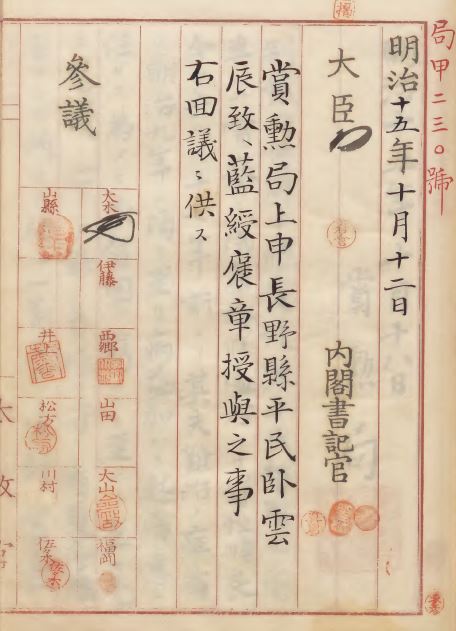 局甲二三〇號
明治十五年十月十二日
大臣
內閣書記官
賞勲局上申長野縣平民臥雲
辰致ヘ藍綬褒章授與之事
右回議ニ供ス
參議
大木
伊藤
西郷
山田
大山
福岡
山縣
井上
松方
川村
佐々木
太政官